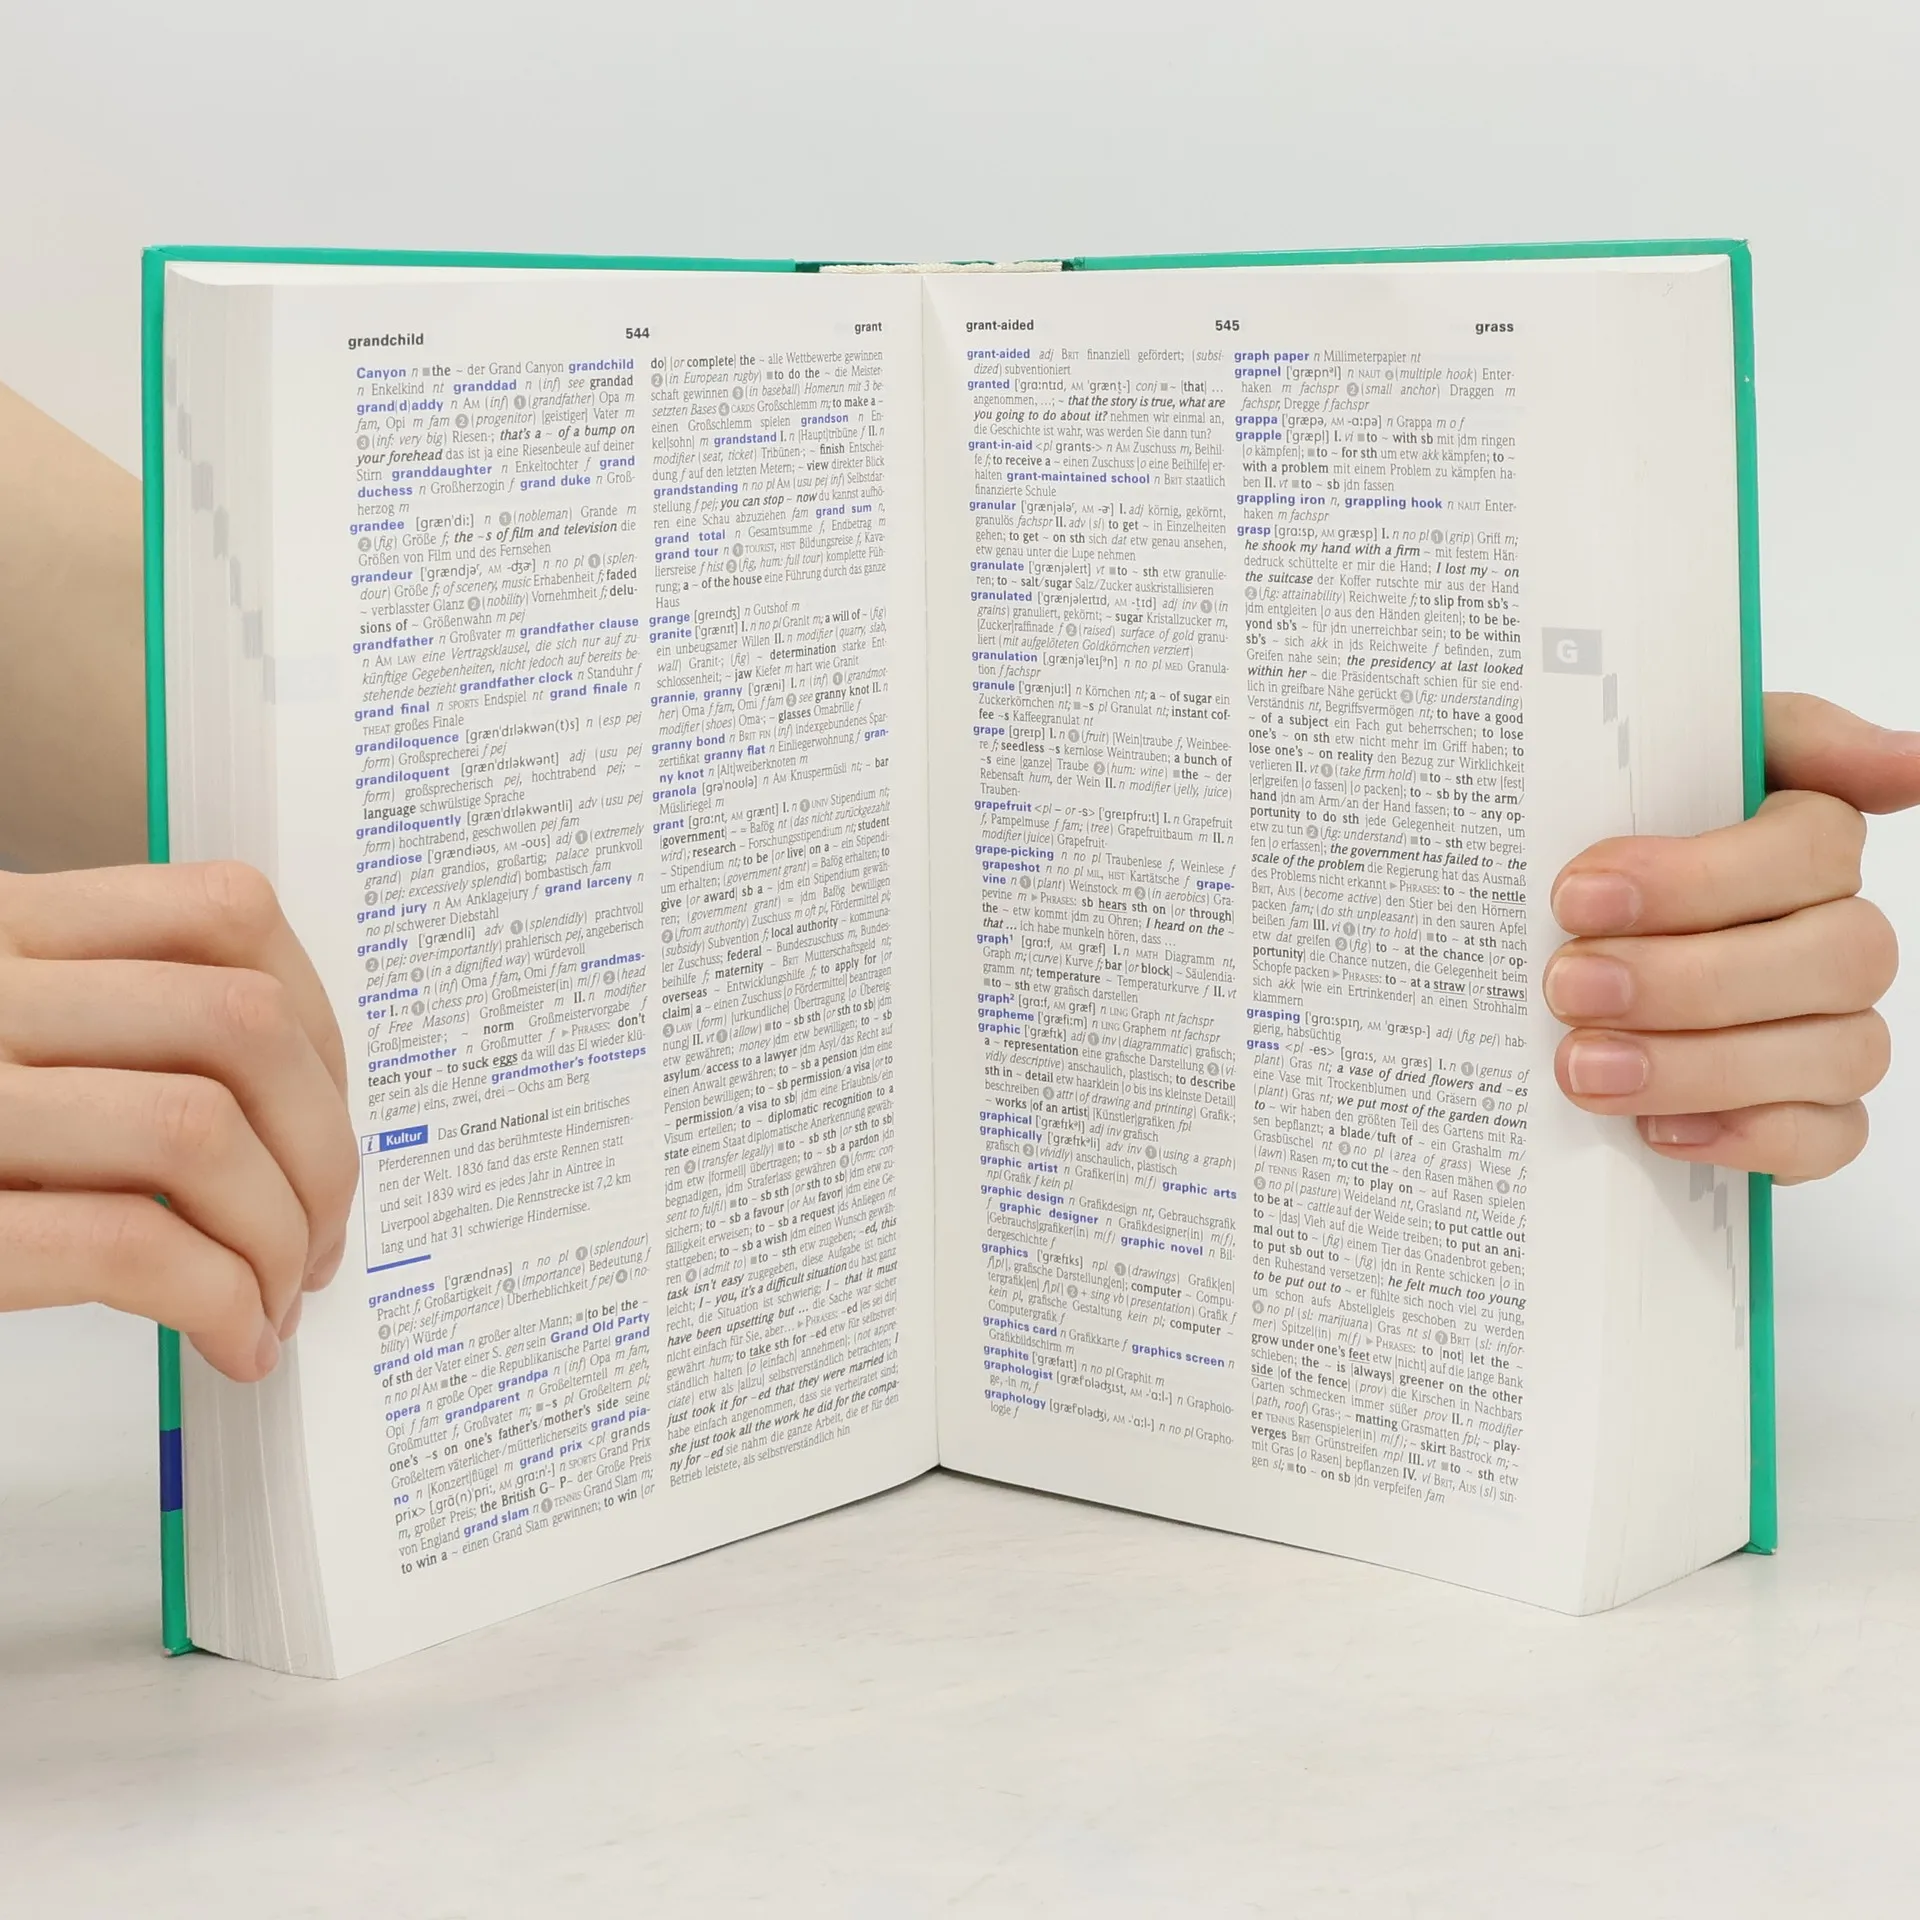 grandchild 544 grant
Canyon n ■the ~ der Grand Canyon grandchild
n Enkelkind nt granddad n (inf) see grandad
grand|d|addy n AM (inf) ❶ (grandfather) Opa m
fam, Opi m fam ❷ (progenitor) |geistiger| Vater m
❸ (inf: very big) Riesen-; that's a ~ of a bump on
your forehead das ist ja eine Riesenbeule auf deiner
Stirn granddaughter n Enkeltochter f grand
duchess n Großherzogin f grand duke n Groß-
herzog m
grandee [græn'di:] n ❶ (nobleman) Grande m
❷ (fig) Größe f; the ~s of film and television die
Größen von Film und des Fernsehen
grandeur ['grændjəʳ, AM -dʒɚ] n no pl ❶ (splen-
dour) Größe f; of scenery, music Erhabenheit f; faded
~ verblasster Glanz ❷ (nobility) Vornehmheit f; delu-
sions of ~ Größenwahn m pej
grandfather n Großvater m grandfather clause
n AM LAW eine Vertragsklausel, die sich nur auf zu-
künftige Gegebenheiten, nicht jedoch auf bereits be-
stehende bezieht grandfather clock n Standuhr f
grand final n SPORTS Endspiel nt grand finale n
THEAT großes Finale
grandiloquence [græn'dɪləkwən(t)s] n (esp pej
form) Großsprecherei f pej
grandiloquent [græn'dɪləkwənt] adj (usu pej
form) großsprecherisch pej, hochtrabend pej; ~
language schwülstige Sprache
grandiloquently [græn'dɪləkwəntli] adv (usu pej
form) hochtrabend, geschwollen pej fam
grandiose ['grændiəʊs, AM -oʊs] adj ❶ (extremely
grand) plan grandios, großartig; palace prunkvoll
❷ (pej: excessively splendid) bombastisch fam
grand jury n AM Anklagejury f grand larceny n
no pl schwerer Diebstahl
grandly ['grændli] adv ❶ (splendidly) prachtvoll
❷ (pej: over-importantly) prahlerisch pej, angeberisch
pej fam ❸ (in a dignified way) würdevoll
grandma n (inf) Oma f fam, Omi f fam grandmas-
ter I. n ❶ (chess pro) Großmeister(in) m(f) ❷ (head
of Free Masons) Großmeister m II. n modifier
|Groß|meister-; ~ norm Großmeistervorgabe f
grandmother n Großmutter f ▶PHRASES: don't
teach your ~ to suck eggs da will das Ei wieder klü-
ger sein als die Henne grandmother's footsteps
n (game) eins, zwei, drei – Ochs am Berg
i Kultur Das Grand National ist ein britisches
Pferderennen und das berühmteste Hindernisren-
nen der Welt. 1836 fand das erste Rennen statt
und seit 1839 wird es jedes Jahr in Aintree in
Liverpool abgehalten. Die Rennstrecke ist 7,2 km
lang und hat 31 schwierige Hindernisse.
grandness ['grændnəs] n no pl ❶ (splendour)
Pracht f, Großartigkeit f ❷ (importance) Bedeutung f
❸ (pej: self-importance) Überheblichkeit f pej ❹ (no-
bility) Würde f
grand old man n großer alter Mann; ■|to be| the ~
of sth der Vater einer S. gen sein Grand Old Party
n no pl AM ■the ~ die Republikanische Partei grand
opera n große Oper grandpa n (inf) Opa m fam,
Opi f fam grandparent n Großelternteil m geh,
Großmutter f, Großvater m; ■~s pl Großeltern pl;
one's ~s on one's father's/mother's side seine
Großeltern väterlicher-/mütterlicherseits grand pia-
no n |Konzert|flügel m grand prix <pl grands
prix> [ˌgrɑ̃(n)'pri:, AM ˌgrɑ:n'-] n SPORTS Grand Prix
m, großer Preis; the British G~ P~ der Große Preis
von England grand slam n ❶ TENNIS Grand Slam m;
to win a ~ einen Grand Slam gewinnen; to win |or
do| |or complete| the ~ alle Wettbewerbe gewinnen
❷ (in European rugby) ■to do the ~ die Meister-
schaft gewinnen ❸ (in baseball) Homerun mit 3 be-
setzten Bases ❹ CARDS Großschlemm m; to make a ~
einen Großschlemm spielen grandson n En-
kel|sohn| m grandstand I. n |Haupt|tribüne f II. n
modifier (seat, ticket) Tribünen-; ~ finish Entschei-
dung f auf den letzten Metern; ~ view direkter Blick
grandstanding n no pl AM (usu pej inf) Selbstdar-
stellung f pej; you can stop ~ now du kannst aufhö-
ren eine Schau abzuziehen fam grand sum n,
grand total n Gesamtsumme f, Endbetrag m
grand tour n ❶ TOURIST, HIST Bildungsreise f, Kava-
liersreise f hist ❷ (fig, hum: full tour) komplette Füh-
rung; a ~ of the house eine Führung durch das ganze
Haus
grange [greɪndʒ] n Gutshof m
granite ['grænɪt] I. n no pl Granit m; a will of ~ (fig)
ein unbeugsamer Willen II. n modifier (quarry, slab,
wall) Granit-; (fig) ~ determination starke Ent-
schlossenheit; ~ jaw Kiefer m hart wie Granit
grannie, granny ['græni] I. n (inf) ❶ (grandmot-
her) Oma f fam, Omi f fam ❷ see granny knot II. n
modifier (shoes) Oma-; ~ glasses Omabrille f
granny bond n BRIT FIN (inf) indexgebundenes Spar-
zertifikat granny flat n Einliegerwohnung f gran-
ny knot n |Alt|weiberknoten m
granola [grə'noʊlə] n AM Knuspermüsli nt; ~ bar
Müsliriegel m
grant [grɑ:nt, AM grænt] I. n ❶ UNIV Stipendium nt;
|government| ~ ≈ Bafög nt (das nicht zurückgezahlt
wird); research ~ Forschungsstipendium nt; student
~ Stipendium nt; to be |or live| on a ~ ein Stipendi-
um erhalten; (government grant) ≈ Bafög erhalten; to
give |or award| sb a ~ jdm ein Stipendium gewäh-
ren; (government grant) ≈ jdm Bafög bewilligen
❷ (from authority) Zuschuss m oft pl, Fördermittel pl;
(subsidy) Subvention f; local authority ~ kommuna-
ler Zuschuss; federal ~ Bundeszuschuss m, Bundes-
beihilfe f; maternity ~ BRIT Mutterschaftsgeld nt;
overseas ~ Entwicklungshilfe f; to apply for |or
claim| a ~ einen Zuschuss |o Fördermittel| beantragen
❸ LAW (form) |urkundliche| Übertragung |o Übereig-
nung| II. vt ❶ (allow) ■to ~ sb sth |or sth to sb| jdm
etw gewähren; money jdm etw bewilligen; to ~ sb
asylum/access to a lawyer jdm Asyl/das Recht auf
einen Anwalt gewähren; to ~ sb a pension jdm eine
Pension bewilligen; to ~ sb permission/a visa |or to
~ permission/a visa to sb| jdm eine Erlaubnis/ein
Visum erteilen; to ~ diplomatic recognition to a
state einem Staat diplomatische Anerkennung gewäh-
ren ❷ (transfer legally) ■to ~ sb sth |or sth to sb|
jdm etw |formell| übertragen; to ~ sb a pardon jdn
begnadigen, jdm Straferlass gewähren ❸ (form: con-
sent to fulfil) ■to ~ sb sth |or sth to sb| jdm etw zu-
sichern; to ~ sb a favour |or AM favor| jdm eine Ge-
fälligkeit erweisen; to ~ sb a request jds Anliegen nt
stattgeben; to ~ sb a wish jdm einen Wunsch gewäh-
ren ❹ (admit to) ■to ~ sth etw zugeben; ~ed, this
task isn't easy zugegeben, diese Aufgabe ist nicht
leicht; I ~ you, it's a difficult situation du hast ganz
recht, die Situation ist schwierig; I ~ that it must
have been upsetting but ... die Sache war sicher
nicht einfach für Sie, aber... ▶PHRASES: ~ed |es sei dir|
gewährt hum; to take sth for ~ed etw für selbstver-
ständlich halten |o |einfach| annehmen|; (not appre-
ciate) etw als |allzu| selbstverständlich betrachten; I
just took it for ~ed that they were married ich
habe einfach angenommen, dass sie verheiratet sind;
she just took all the work he did for the compa-
ny for ~ed sie nahm die ganze Arbeit, die er für den
Betrieb leistete, als selbstverständlich hin
grant-aided 545 grass
grant-aided adj BRIT finanziell gefördert; (subsi-
dized) subventioniert
granted ['grɑ:ntɪd, AM 'grænt̬-] conj ■~ |that| ...
angenommen, ...; ~ that the story is true, what are
you going to do about it? nehmen wir einmal an,
die Geschichte ist wahr, was werden Sie dann tun?
grant-in-aid <pl grants-> n AM Zuschuss m, Beihil-
fe f; to receive a ~ einen Zuschuss |o eine Beihilfe| er-
halten grant-maintained school n BRIT staatlich
finanzierte Schule
granular ['grænjələʳ, AM -ɚ] I. adj körnig, gekörnt,
granulös fachspr II. adv (sl) to get ~ in Einzelheiten
gehen; to get ~ on sth sich dat etw genau ansehen,
etw genau unter die Lupe nehmen
granulate ['grænjəleɪt] vt ■to ~ sth etw granulie-
ren; to ~ salt/sugar Salz/Zucker auskristallisieren
granulated ['grænjəleɪtɪd, AM -t̬ɪd] adj inv ❶ (in
grains) granuliert, gekörnt; ~ sugar Kristallzucker m,
|Zucker|raffinade f ❷ (raised) surface of gold granu-
liert (mit aufgelöteten Goldkörnchen verziert)
granulation [ˌgrænjə'leɪʃᵊn] n no pl MED Granula-
tion f fachspr
granule ['grænju:l] n Körnchen nt; a ~ of sugar ein
Zuckerkörnchen nt; ■~s pl Granulat nt; instant cof-
fee ~s Kaffeegranulat nt
grape [greɪp] I. n ❶ (fruit) |Wein|traube f, Weinbee-
re f; seedless ~s kernlose Weintrauben; a bunch of
~s eine |ganze| Traube ❷ (hum: wine) ■the ~ der
Rebensaft hum, der Wein II. n modifier (jelly, juice)
Trauben-
grapefruit <pl - or -s> ['greɪpfru:t] I. n Grapefruit
f, Pampelmuse f fam; (tree) Grapefruitbaum m II. n
modifier (juice) Grapefruit-
grape-picking n no pl Traubenlese f, Weinlese f
grapeshot n no pl MIL, HIST Kartätsche f grape-
vine n ❶ (plant) Weinstock m ❷ (in aerobics) Gra-
pevine m ▶PHRASES: sb hears sth on |or through|
the ~ etw kommt jdm zu Ohren; I heard on the ~
that ... ich habe munkeln hören, dass ...
graph¹ [grɑ:f, AM græf] I. n MATH Diagramm nt,
Graph m; (curve) Kurve f; bar |or block| ~ Säulendia-
gramm nt; temperature ~ Temperaturkurve f II. vt
■to ~ sth etw grafisch darstellen
graph² [grɑ:f, AM græf] n LING Graph nt fachspr
grapheme ['græfi:m] n LING Graphem nt fachspr
graphic ['græfɪk] adj ❶ inv (diagrammatic) grafisch;
a ~ representation eine grafische Darstellung ❷ (vi-
vidly descriptive) anschaulich, plastisch; to describe
sth in ~ detail etw haarklein |o bis ins kleinste Detail|
beschreiben ❸ attr (of drawing and printing) Grafik-;
~ works |of an artist| |Künstler|grafiken fpl
graphical ['græfɪkᵊl] adj inv grafisch
graphically ['græfɪkᵊli] adv inv ❶ (using a graph)
grafisch ❷ (vividly) anschaulich, plastisch
graphic artist n Grafiker(in) m(f) graphic arts
npl Grafik f kein pl
graphic design n Grafikdesign nt, Gebrauchsgrafik
f graphic designer n Grafikdesigner(in) m(f),
|Gebrauchs|grafiker(in) m(f) graphic novel n Bil-
dergeschichte f
graphics ['græfɪks] npl ❶ (drawings) Grafik|en|
f|pl|, grafische Darstellung|en|; computer ~ Compu-
tergrafik|en| f|pl| ❷ + sing vb (presentation) Grafik f
kein pl, grafische Gestaltung kein pl; computer ~
Computergrafik f
graphics card n Grafikkarte f graphics screen n
Grafikbildschirm m
graphite ['græfaɪt] n no pl Graphit m
graphologist [græf'ɒlədʒɪst, AM -'ɑ:l-] n Grapholo-
ge, -in m, f
graphology [græf'ɒlədʒi, AM -'ɑ:l-] n no pl Grapho-
logie f
graph paper n Millimeterpapier nt
grapnel ['græpnᵊl] n NAUT ❶ (multiple hook) Enter-
haken m fachspr ❷ (small anchor) Draggen m
fachspr, Dregge f fachspr
grappa ['græpə, AM -ɑ:pə] n Grappa m o f
grapple ['græpl] I. vi ■to ~ with sb mit jdm ringen
|o kämpfen|; ■to ~ for sth um etw akk kämpfen; to ~
with a problem mit einem Problem zu kämpfen ha-
ben II. vt ■to ~ sb jdn fassen
grappling iron n, grappling hook n NAUT Enter-
haken m fachspr
grasp [grɑ:sp, AM græsp] I. n no pl ❶ (grip) Griff m;
he shook my hand with a firm ~ mit festem Hän-
dedruck schüttelte er mir die Hand; I lost my ~ on
the suitcase der Koffer rutschte mir aus der Hand
❷ (fig: attainability) Reichweite f; to slip from sb's ~
jdm entgleiten |o aus den Händen gleiten|; to be be-
yond sb's ~ für jdn unerreichbar sein; to be within
sb's ~ sich akk in jds Reichweite f befinden, zum
Greifen nahe sein; the presidency at last looked
within her ~ die Präsidentschaft schien für sie end-
lich in greifbare Nähe gerückt ❸ (fig: understanding)
Verständnis nt, Begriffsvermögen nt; to have a good
~ of a subject ein Fach gut beherrschen; to lose
one's ~ on sth etw nicht mehr im Griff haben; to
lose one's ~ on reality den Bezug zur Wirklichkeit
verlieren II. vt ❶ (take firm hold) ■to ~ sth etw |fest|
|er|greifen |o fassen| |o packen|; to ~ sb by the arm/
hand jdn am Arm/an der Hand fassen; to ~ any op-
portunity to do sth jede Gelegenheit nutzen, um
etw zu tun ❷ (fig: understand) ■to ~ sth etw begrei-
fen |o erfassen|; the government has failed to ~ the
scale of the problem die Regierung hat das Ausmaß
des Problems nicht erkannt ▶PHRASES: to ~ the nettle
BRIT, AUS (become active) den Stier bei den Hörnern
packen fam; (do sth unpleasant) in den sauren Apfel
beißen fam III. vi ❶ (try to hold) ■to ~ at sth nach
etw dat greifen ❷ (fig) to ~ at the chance |or op-
portunity| die Chance nutzen, die Gelegenheit beim
Schopfe packen ▶PHRASES: to ~ at a straw |or straws|
sich akk |wie ein Ertrinkender| an einen Strohhalm
klammern
grasping ['grɑ:spɪŋ, AM 'græsp-] adj (fig pej) hab-
gierig, habsüchtig
grass <pl -es> [grɑ:s, AM græs] I. n ❶ (genus of
plant) Gras nt; a vase of dried flowers and ~es
eine Vase mit Trockenblumen und Gräsern ❷ no pl
(plant) Gras nt; we put most of the garden down
to ~ wir haben den größten Teil des Gartens mit Ra-
sen bepflanzt; a blade/tuft of ~ ein Grashalm m/
Grasbüschel nt ❸ no pl (area of grass) Wiese f;
(lawn) Rasen m; to cut the ~ den Rasen mähen ❹ no
pl TENNIS Rasen m; to play on ~ auf Rasen spielen
❺ no pl (pasture) Weideland nt, Grasland nt, Weide f;
to be at ~ cattle auf der Weide sein; to put cattle out
to ~ |das| Vieh auf die Weide treiben; to put an ani-
mal out to ~ (fig) einem Tier das Gnadenbrot geben;
to put sb out to ~ (fig) jdn in Rente schicken |o in
den Ruhestand versetzen|; he felt much too young
to be put out to ~ er fühlte sich noch viel zu jung,
um schon aufs Abstellgleis geschoben zu werden
❻ no pl (sl: marijuana) Gras nt sl ❼ BRIT (sl: infor-
mer) Spitzel(in) m(f) ▶PHRASES: to |not| let the ~
grow under one's feet etw |nicht| auf die lange Bank
schieben; the ~ is |always| greener on the other
side |of the fence| (prov) die Kirschen in Nachbars
Garten schmecken immer süßer prov II. n modifier
(path, roof) Gras-; ~ matting Grasmatten fpl; ~ play-
er TENNIS Rasenspieler(in) m(f); ~ skirt Bastrock m; ~
verges BRIT Grünstreifen mpl III. vt ■to ~ sth etw
mit Gras |o Rasen| bepflanzen IV. vi BRIT, AUS (sl) sin-
gen sl; ■to ~ on sb jdn verpfeifen fam
G